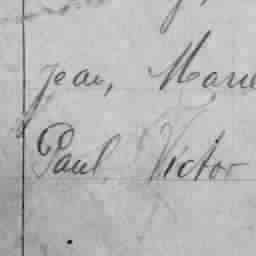 jean, Marie
Paul Victor